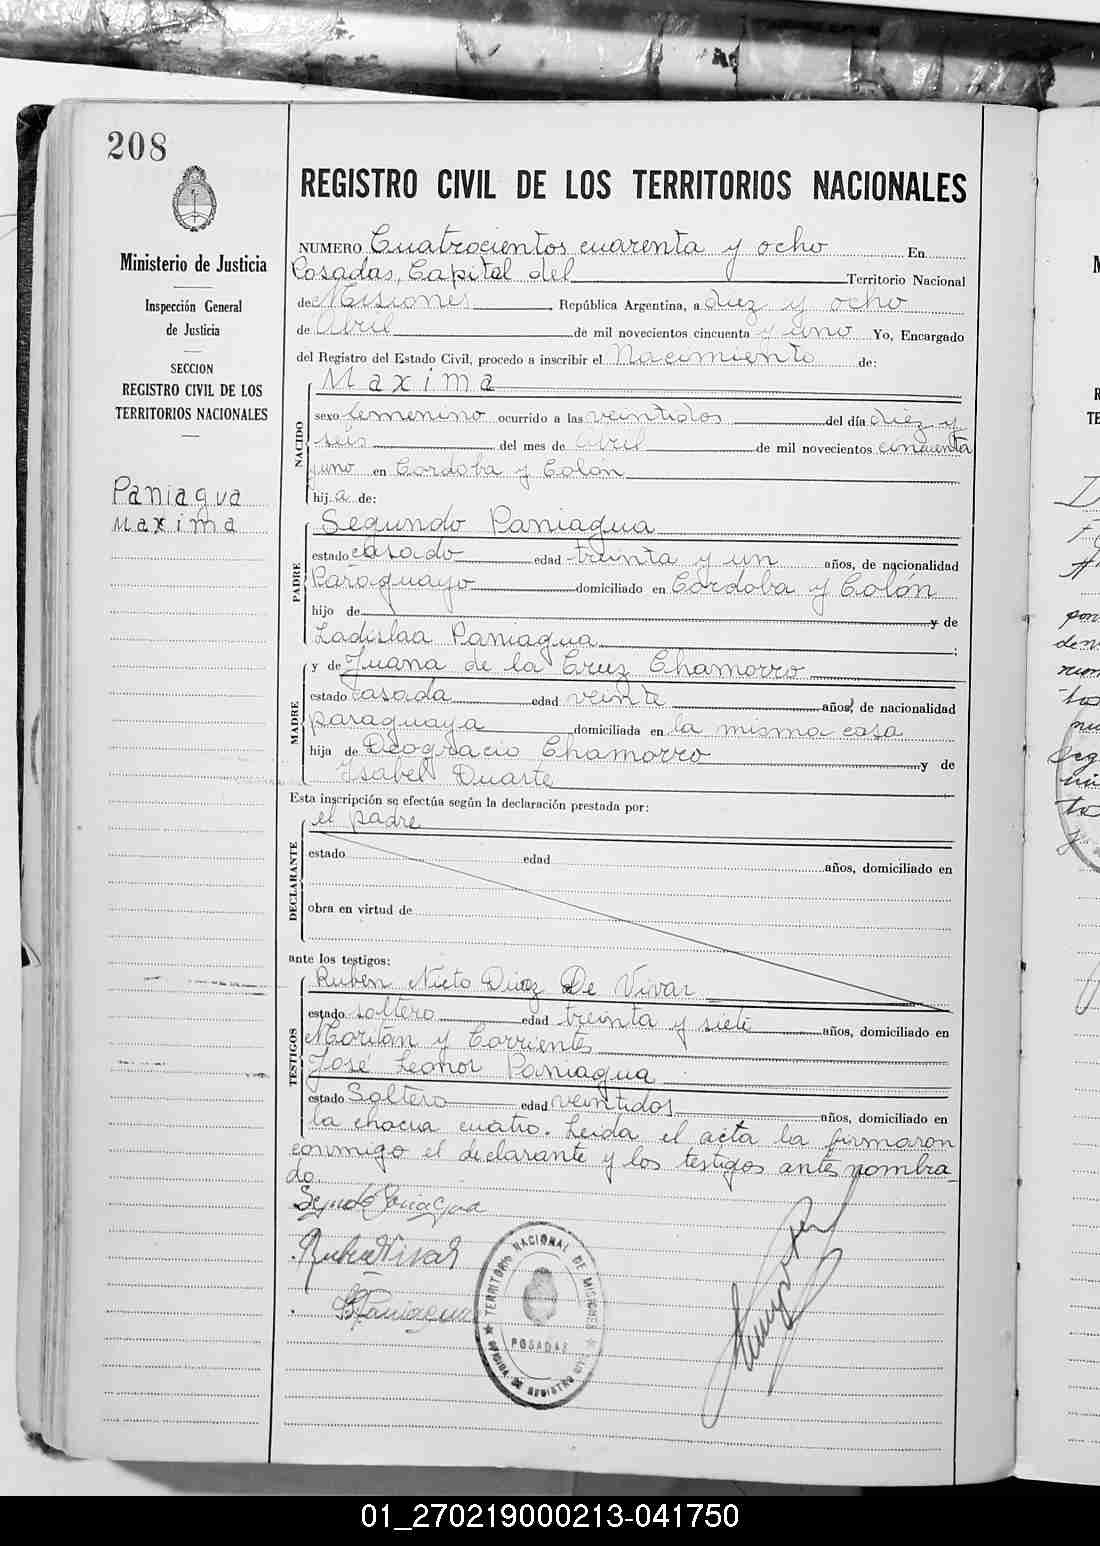 208
Ministerio de Justicia
Inspección General
de Justicia
SECCION
REGISTRO CIVIL DE LOS
TERRITORIOS NACIONALES
Paniagua
Maxima
REGISTRO CIVIL DE LOS TERRITORIOS NACIONALES
NUMERO Cuatrocientos cuarenta y ocho En
Posadas, Capital del Territorio Nacional
de Misiones, República Argentina, a diez y ocho
de Abril de mil novecientos cincuenta y uno Yo, Encargado
del Registro del Estado Civil, procedo a inscribir el Nacimiento de:
NACIDO
Maxima
sexo femenino ocurrido a las veintidos del día diez y
seis del mes de Abril de mil novecientos cincuenta
y uno en Cordoba y Colón
hija de:
PADRE
Segundo Paniagua
estado casado edad treinta y un años, de nacionalidad
Paraguayo domiciliado en Cordoba y Colón
hijo de y de
Ladislaa Paniagua ;
MADRE
y de Juana de la Cruz Chamorro
estado casada edad veinte años, de nacionalidad
paraguaya domiciliada en la misma casa
hija de Deogracio Chamorro y de
Isabel Duarte
Esta inscripción se efectúa según la declaración prestada por:
DECLARANTE
el padre
estado edad años, domiciliado en
obra en virtud de
ante los testigos:
TESTIGOS
Ruben Nieto Diaz De Vivar
estado soltero edad treinta y siete años, domiciliado en
Moritán y Corrientes
José Leonor Paniagua
estado Soltero edad veintidos años, domiciliado en
la chacra cuatro. Leida el acta la firmaron
conmigo el declarante y los testigos antes nombra
do
Segundo Paniagua
Ruben Vivar
Paniagua
TERRITORIO NACIONAL DE MISIONES
POSADAS
OFICINA DE REGISTRO CIVIL
01_270219000213-041750